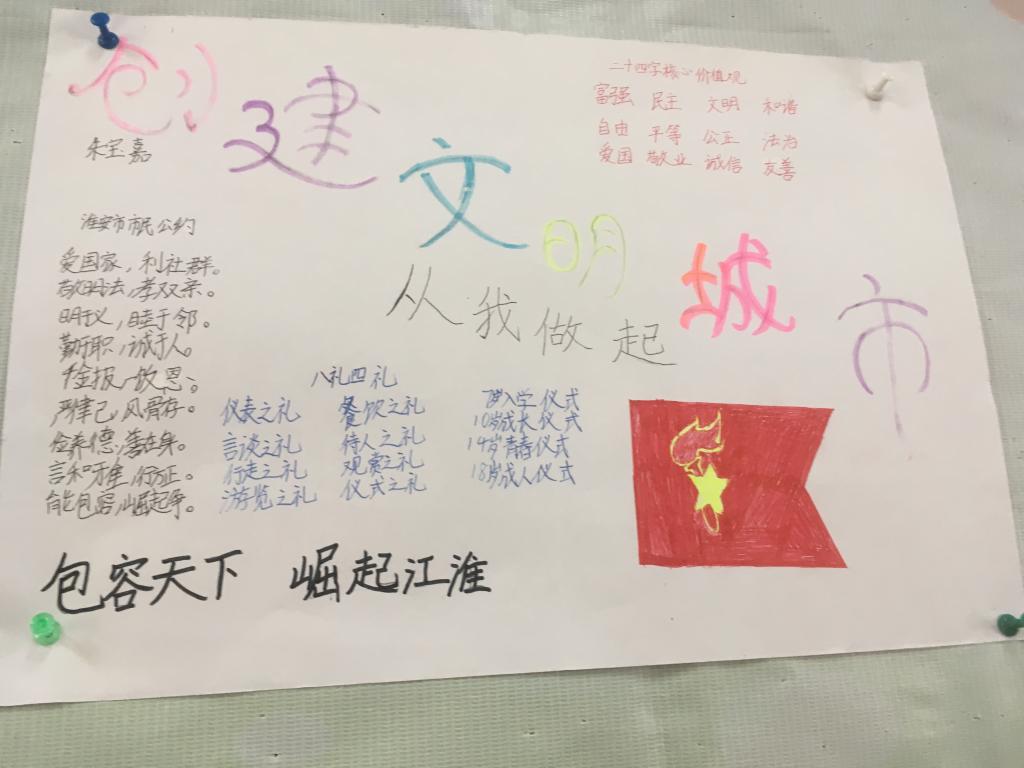 创建文明城市
朱宝嘉
从我做起
二十四字核心价值观
富强 民主 文明 和谐
自由 平等 公正 法治
爱国 敬业 诚信 友善
淮安市市民公约
爱国家，利社群。
敬明法，孝双亲。
明礼义，睦于邻。
勤于职，诚于人。
严律己，风骨存。
言和雅，行方正。
能包容，崛起争。
八礼四礼
仪表之礼 餐饮之礼 7岁入学仪式
言谈之礼 待人之礼 10岁成长仪式
行走之礼 观赏之礼 14岁青春仪式
游览之礼 仪式之礼 18岁成人仪式
包容天下 崛起江淮